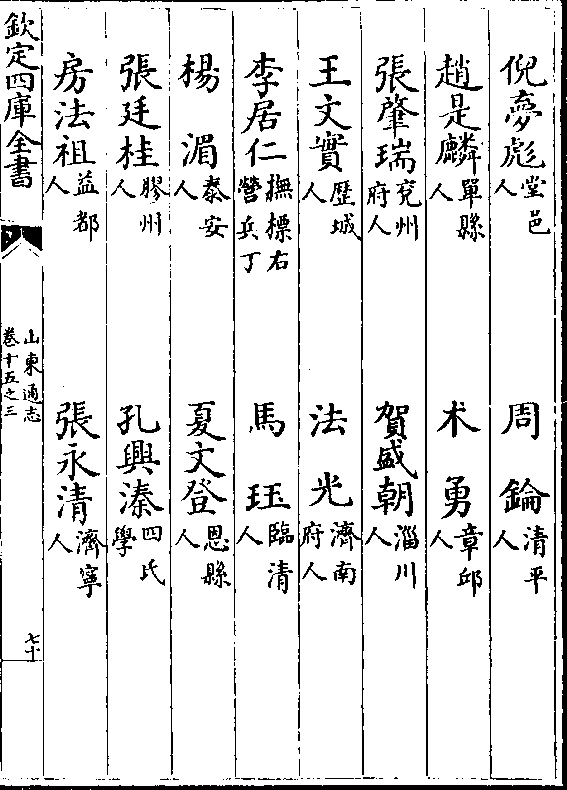 倪夢彪堂邑人 周鑰清平人
趙是麟單縣人 术勇章邱人
張肇瑞兖州府人 賀盛朝淄川人
王文實歴城人 法光濟南府人
李居仁撫標右營兵丁 馬珏臨清人
楊湄泰安人 夏文登恩縣人
張廷桂膠州人 孔興溱四氏學
房法祖益都人 張永清濟寧人
欽定四庫全書 山東通志卷十五之三 七十